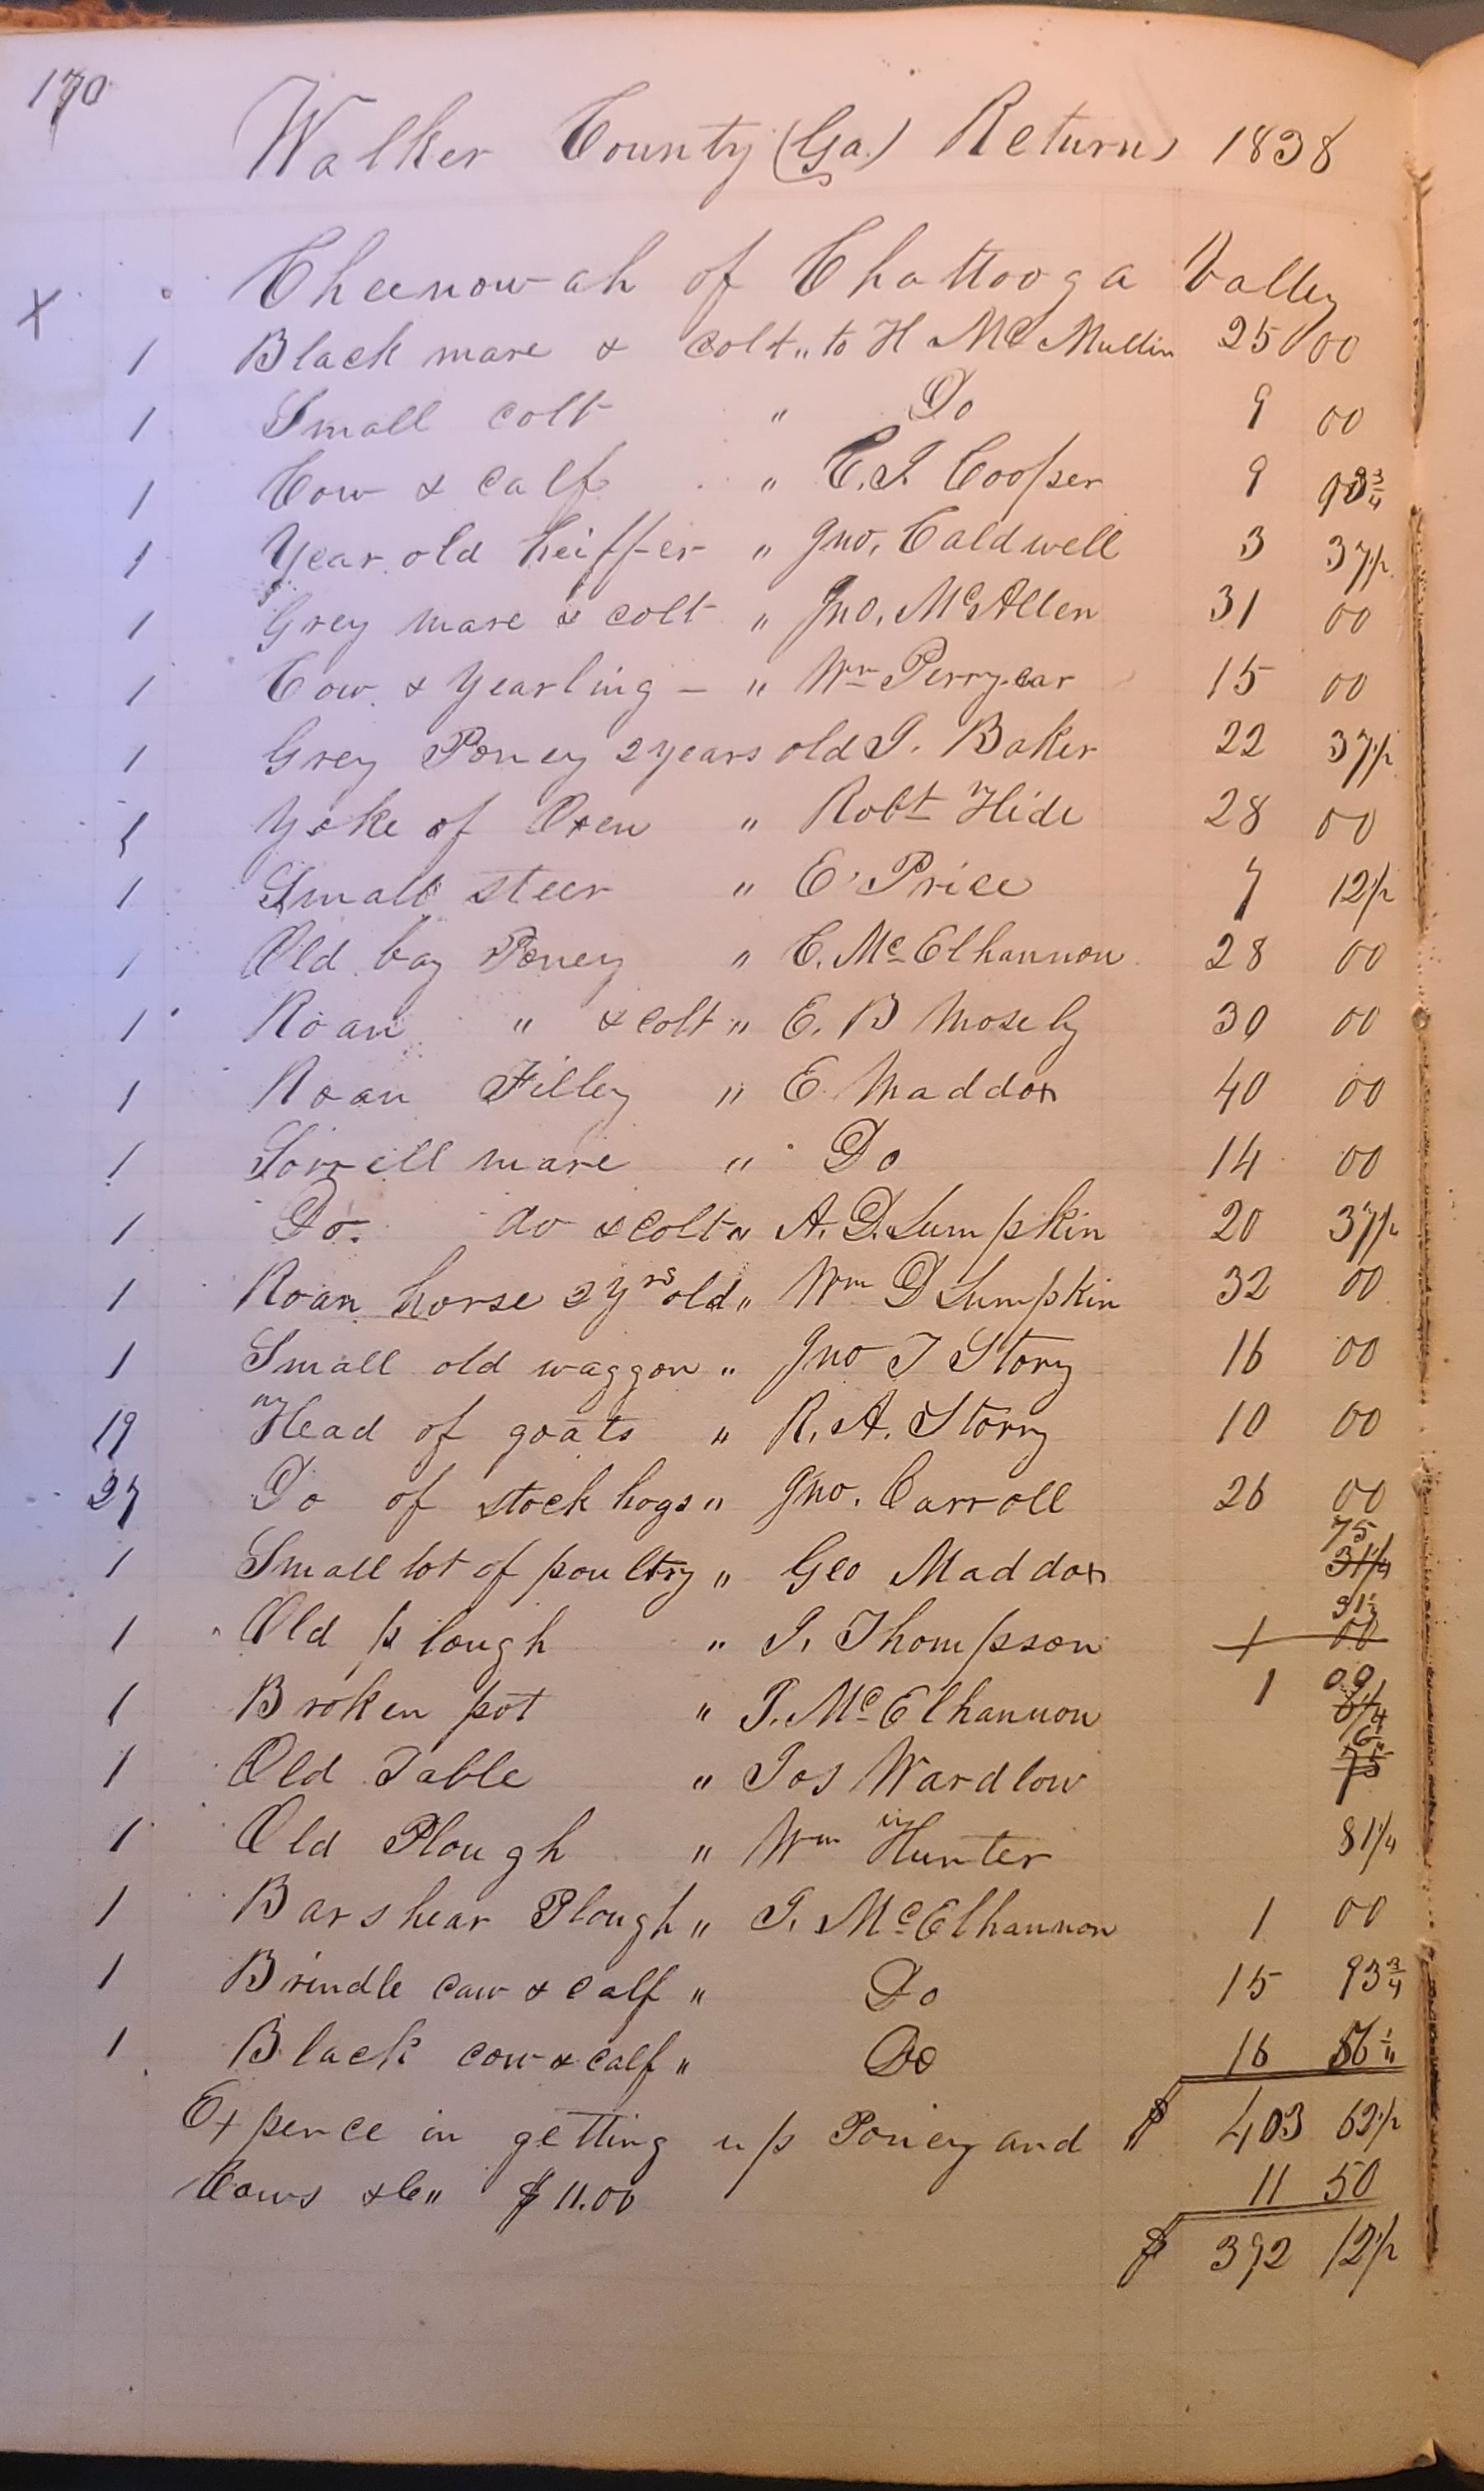 170
Walker County (Ga.) Returns 1838
X Cheenowah of Chattooga Valley
1 Black mare & colt " to H McMullin 25 00
1 Small colt " Do 9 00
1 Cow & calf " C.J. Cooper 9 93 3/4
1 Year old heiffer " Jno. Caldwell 3 37 1/2
1 Grey mare & colt " Jno. McAllen 31 00
1 Cow & Yearling – " Wm Perryear 15 00
1 Grey Poney 2 years old J. Baker 22 37 1/2
1 Yoke of Oxen " Robt Hide 28 00
1 Small steer " E. Price 7 12 1/2
1 Old bay Poney " C. McElhannon 28 00
1 Roan " & colt " E. B Mosely 30 00
1 Roan Filley " E Maddox 40 00
1 Sorrell mare " Do 14 00
1 Do. do & colt " A. D. Lumpkin 20 37 1/2
1 Roan horse 2 yrs old " Wm D Lumpkin 32 00
1 Small old waggon " Jno T Story 16 00
19 Head of goats " R. A. Storry 10 00
27 Do of stock hogs " Jno. Carroll 26 00
1 Small lot of poultry " Geo Maddox 75 31 1/4
1 Old plough " J. Thompson 1 00 31 1/2
1 Broken pot " J. McElhannon 1 00 6 1/4
1 Old Table " Jos Wardlow 6 75
1 Old Plough " Wm Hunter 81 1/4
1 Barshear Plough " J. McElhannon 1 00
1 Brindle caw & calf " Do 15 93 3/4
1 Black cow & calf " Do 16 56 1/4
Expence in getting up Poney and $ 403 62 1/2
Cows &c " $11.00 11 50
$ 392 12 1/2